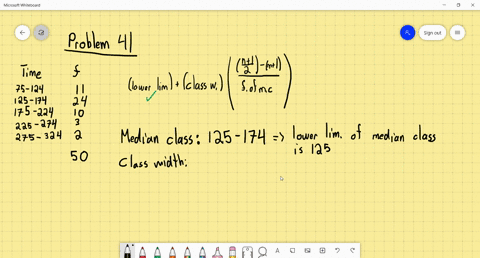 Microsoft Whiteboard
Sign out
Problem 41
Time f
75-124 11
125-174 24
175-224 10
225-274 3
275-324 2
50
(lower lim) + (class w.) ( ( (n+1)/2 ) - (m+1) / f. of m.c )
Median class: 125-174 => lower lim. of median class
is 125
Class width: